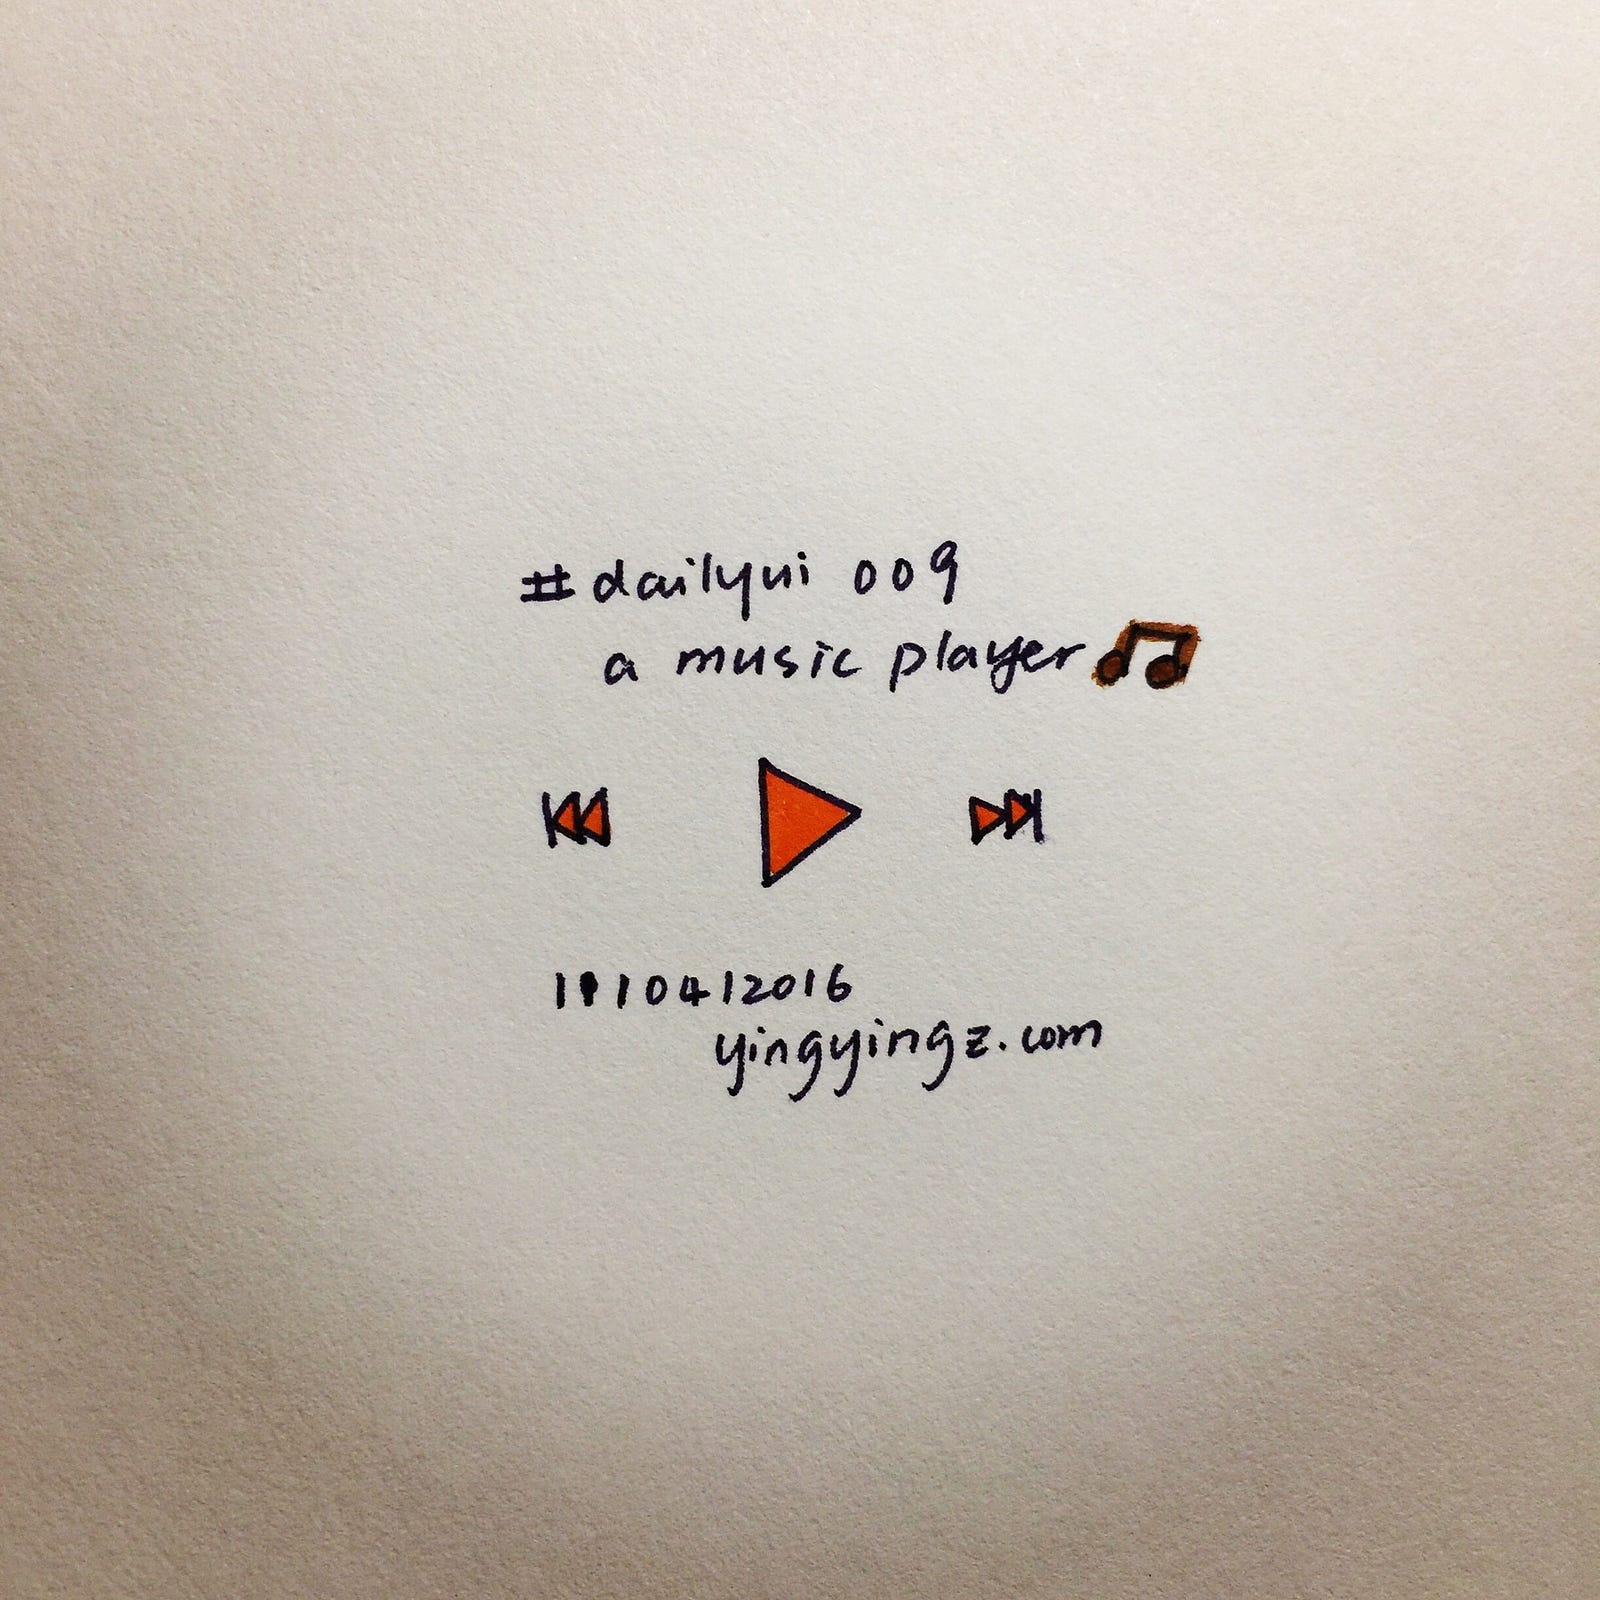 #dailyui 009
a music player
11/04/2016
yingyingz.com